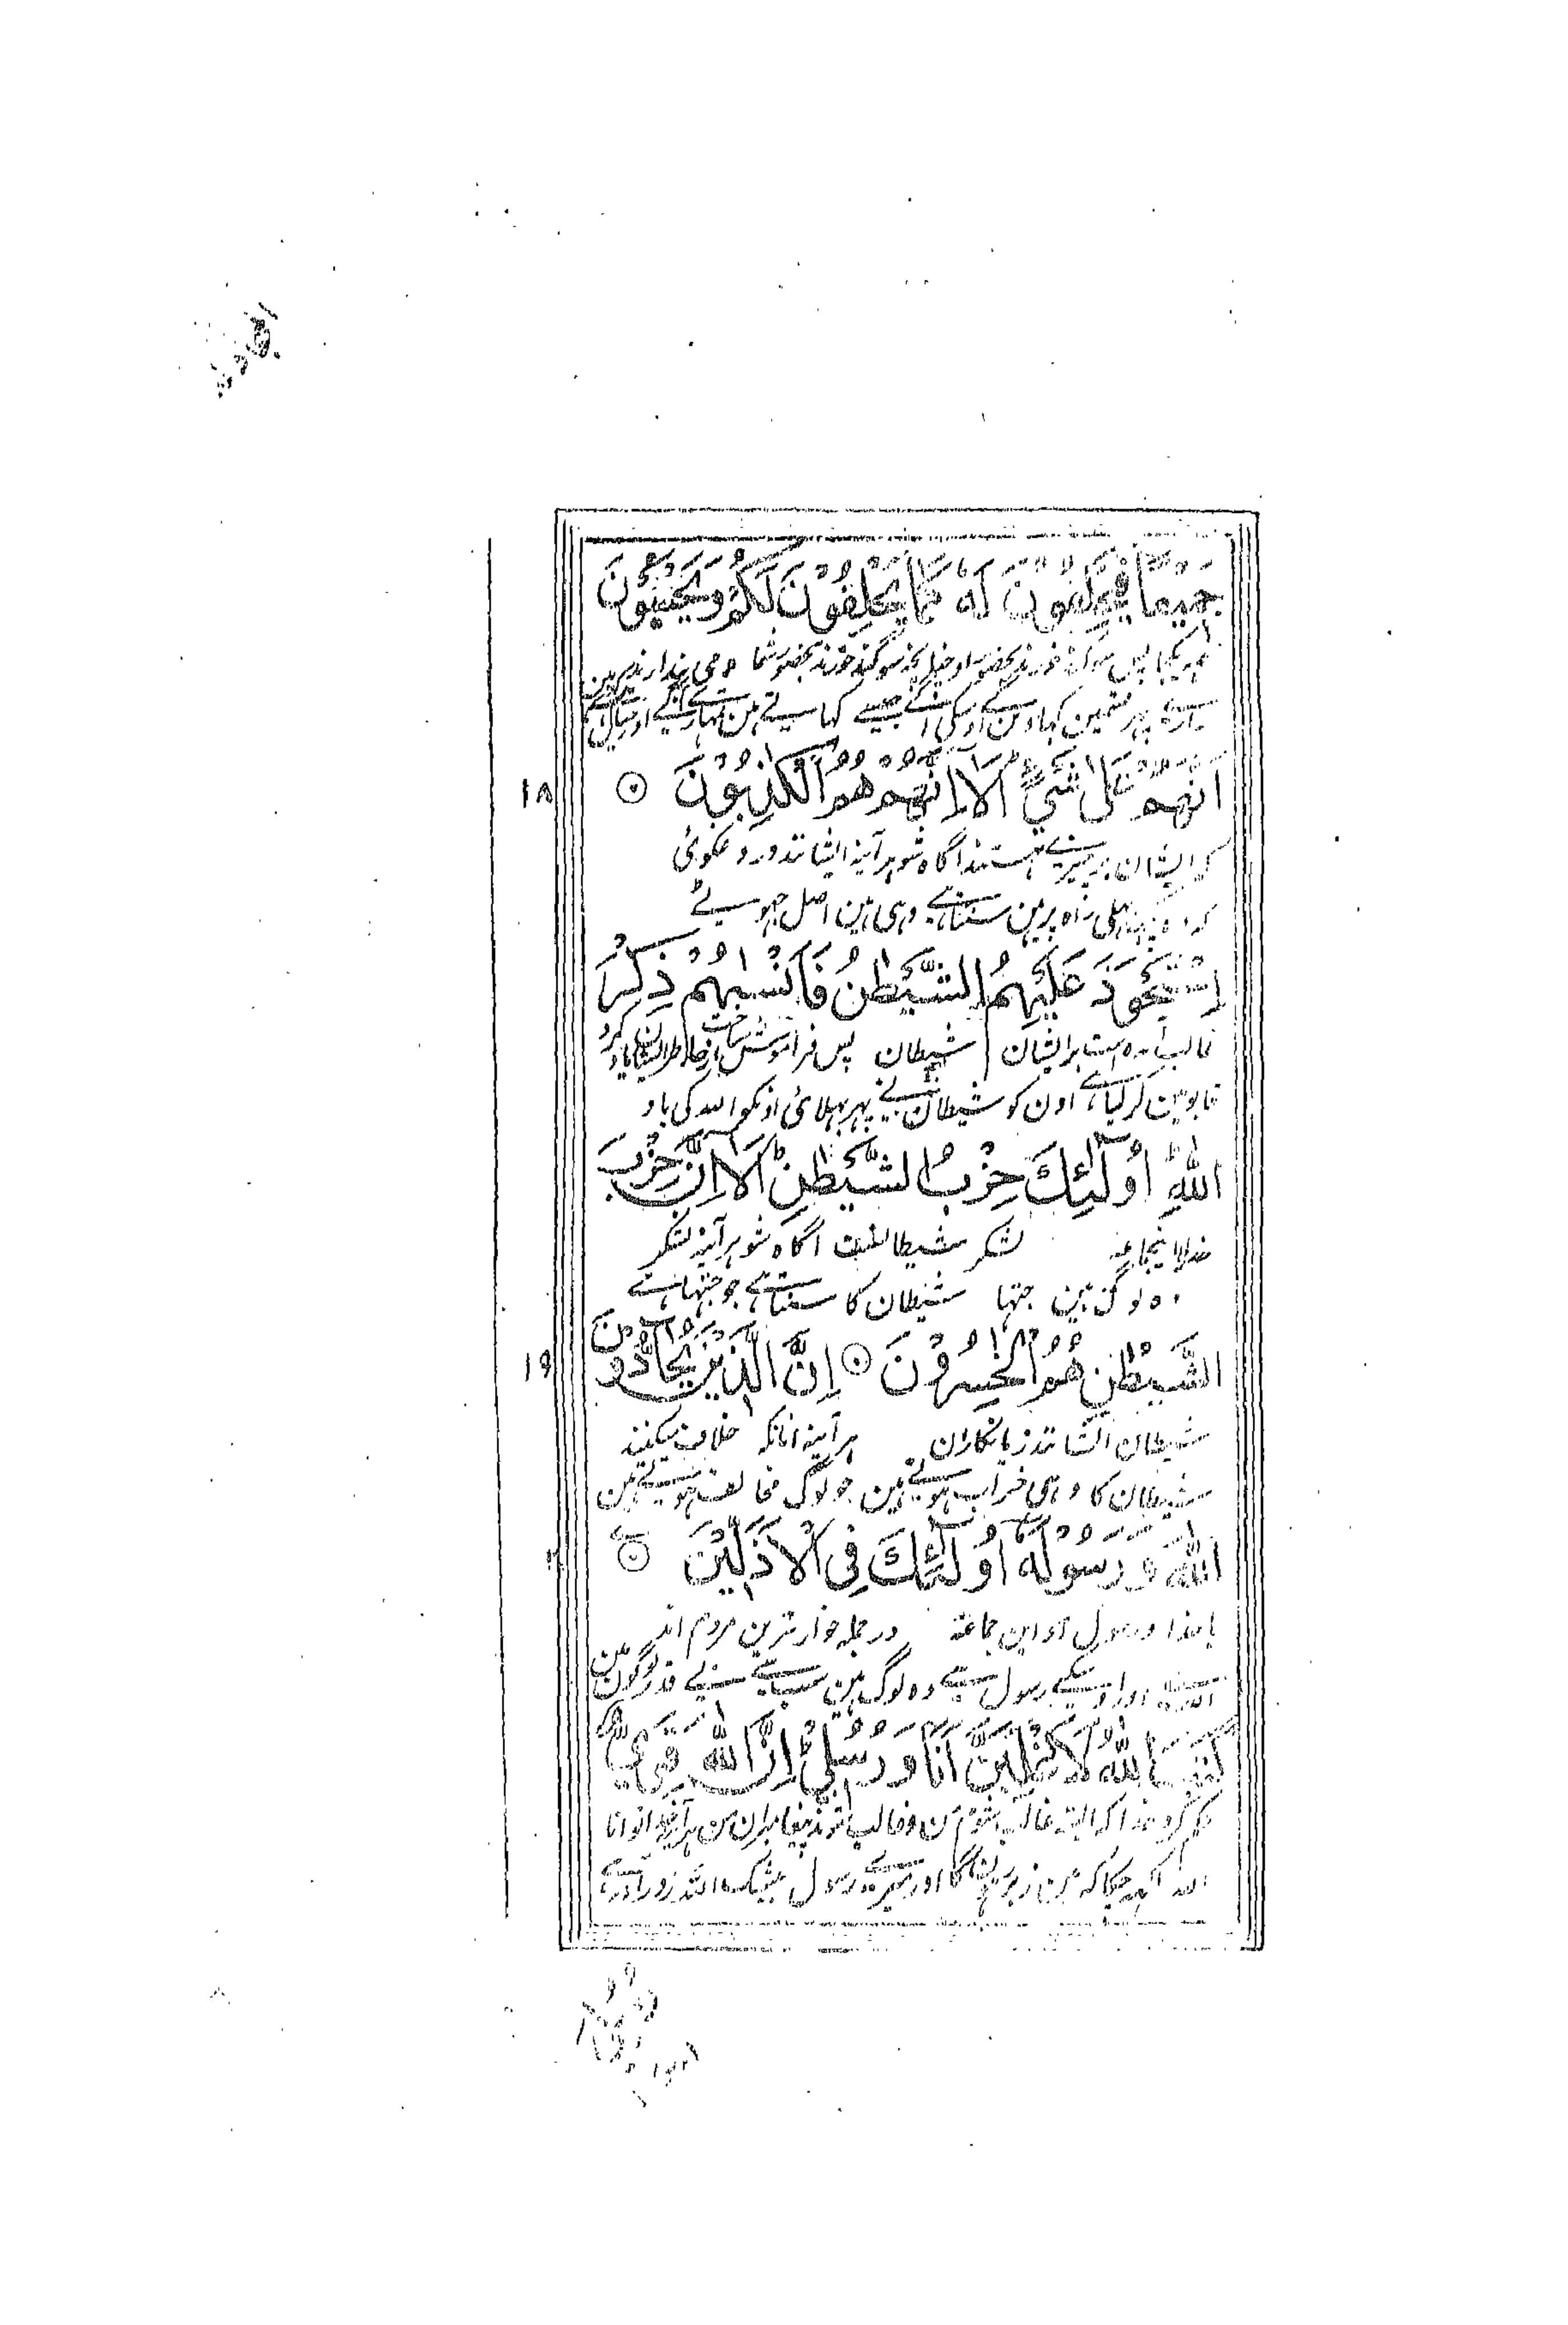 جَمِيْعًا فَيَحْلِفُوْنَ لَهٗ كَمَا يَحْلِفُوْنَ لَكُمْ وَيَحْسَبُوْنَ
سوگند خورند بحضور او چنانچہ سوگند خورند بحضور شما و می پندارند
پہر قسمین کہاوین گے اوسکی آگے جیسے کہاتے ہین تمہارے آگے اور خیال
١٨
اَنَّهُمْ عَلٰى شَيْءٍ اَلَا اِنَّهُمْ هُمُ الْكٰذِبُوْنَ
کہ ایشان بر چیزے ہستند آگاہ شو ہر آینہ ایشانند دروغگوئی
راہ پر ہین سنتا ہے وہی ہین اصل جہوٹے
اِسْتَحْوَذَ عَلَيْهِمُ الشَّيْطٰنُ فَاَنْسٰىهُمْ ذِكْرَ
غالب شدہ است بر ایشان شیطان پس فراموش ساخت از خاطر ایشان یاد کرد
قابو مین کر لیا ہے اون کو شیطان نے پہر بہلائی اونکو اللہ کی یاد
اللّٰهِ اُولٰٓئِكَ حِزْبُ الشَّيْطٰنِ اَلَا اِنَّ حِزْبَ
خدا اینجماعہ لشکر شیطانست آگاہ شو ہر آینہ لشکر
وہ لوگ ہین جتہا شیطان کا سنتا ہے جو جتہا ہے
١٩
الشَّيْطٰنِ هُمُ الْخٰسِرُوْنَ اِنَّ الَّذِيْنَ يُحَآدُّوْنَ
شیطان ایشانند زیانکاران ہر آینہ آنانکہ خلاف میکنند
شیطان کا وہی خراب ہوتے ہین جو لوگ مخالف ہوتے ہین
اللّٰهَ وَرَسُوْلَهٗٓ اُولٰٓئِكَ فِى الْاَذَلِّيْنَ
با خدا و رسول او این جماعہ در جملہ خوار ترین مردم اند
اللہ سے اور اوسکے رسول سے وہ لوگ ہین سب سے بے قدر لوگون مین
كَتَبَ اللّٰهُ لَاَغْلِبَنَّ اَنَا وَرُسُلِيْ اِنَّ اللّٰهَ قَوِيٌّ
حکم کرد خدا کہ البتہ غالب شوم من و غالب شوند پیغامبران من ہر آینہ خدا توانا
اللہ لکہہ چکا کہ مین زبر ہونگا اور میرے رسول بیشک اللہ زورآور ہے